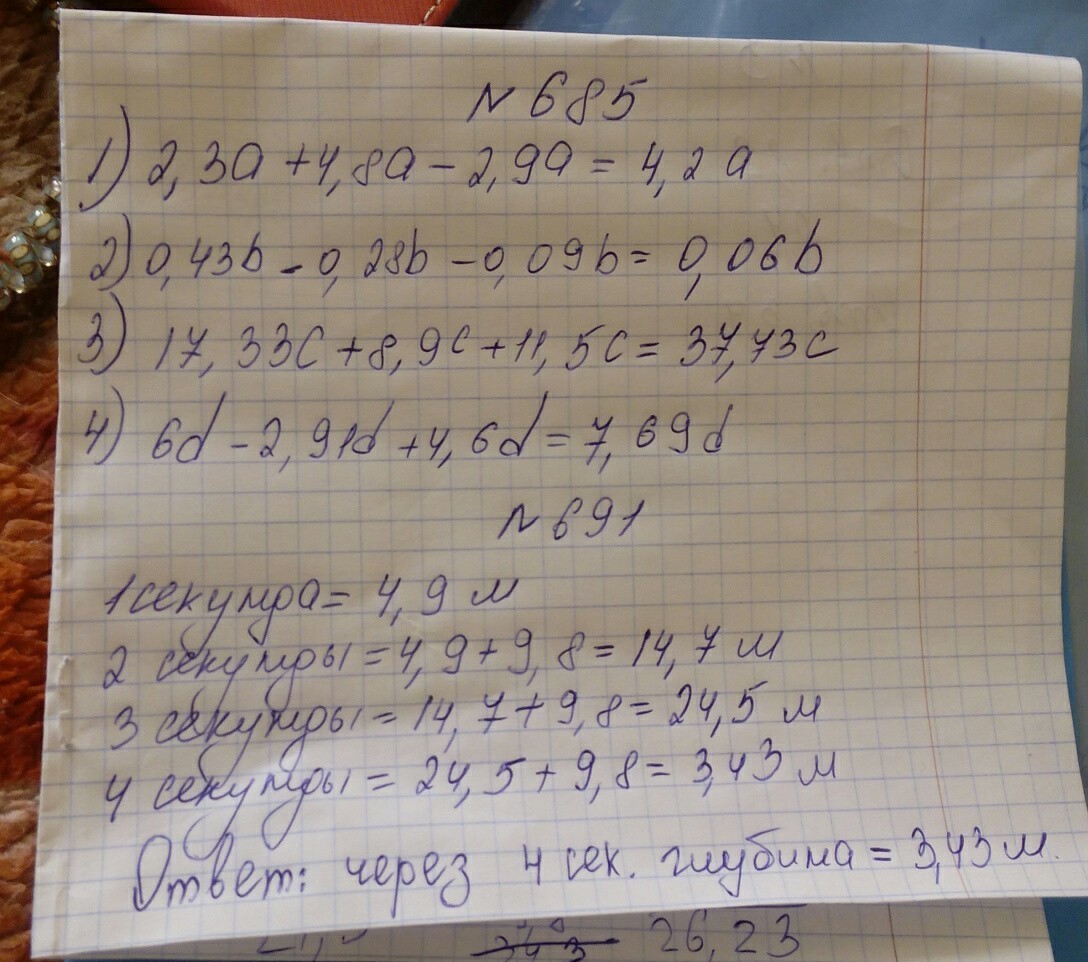 N 685
1) 2,3a + 4,8a - 2,9a = 4,2a
2) 0,43b - 0,28b - 0,09b = 0,06b
3) 17,33c + 8,9c + 11,5c = 37,73c
4) 6d - 2,91d + 4,6d = 7,69d
N 691
1 секунда = 4,9 м
2 секунды = 4,9 + 9,8 = 14,7 м
3 секунды = 14,7 + 9,8 = 24,5 м
4 секунды = 24,5 + 9,8 = 3,43 м
Ответ: через 4 сек. глубина = 3,43 м.
26,23